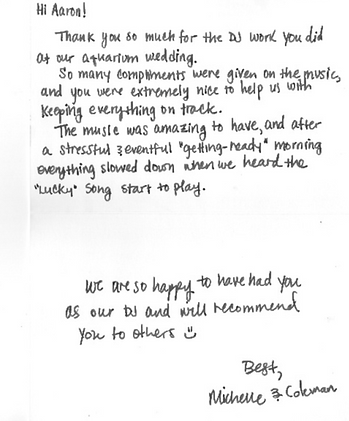 Hi Aaron!
Thank you so much for the DJ work you did
at our aquarium wedding.
So many compliments were given on the music,
and you were extremely nice to help us with
keeping everything on track.
The music was amazing to have, and after
a stressful & eventful "getting-ready" morning
everything slowed down when we heard the
"Lucky" song start to play.
We are so happy to have had you
as our DJ and will recommend
you to others ☺
Best,
Michelle & Coleman